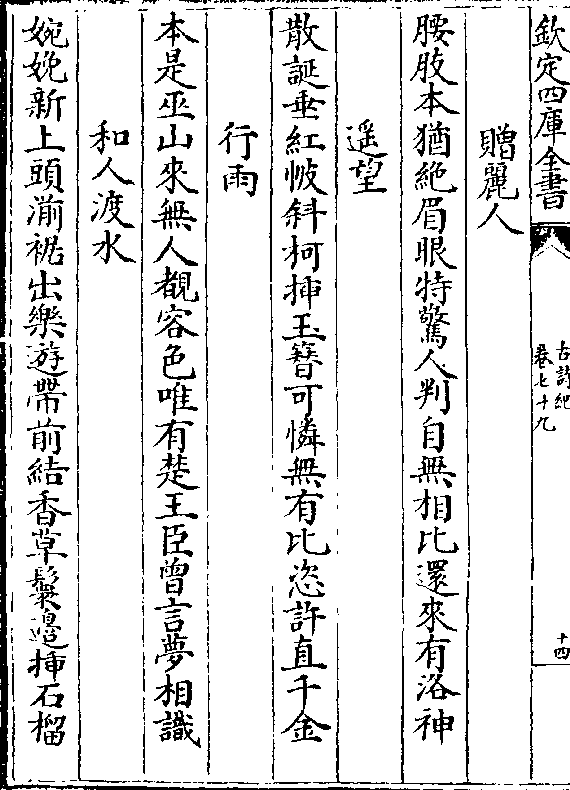 欽定四庫全書
古詩紀
卷七十九
十四
贈麗人
腰肢本猶絶眉眼特驚人判自無相比還來有洛神
遥望
散誕垂紅帔斜柯揷玉簪可憐無有比恣許直千金
行雨
本是巫山來無人覩容色唯有楚王臣曾言夢相識
和人渡水
婉娩新上頭湔裾出樂遊帶前結香草鬟邉揷石榴